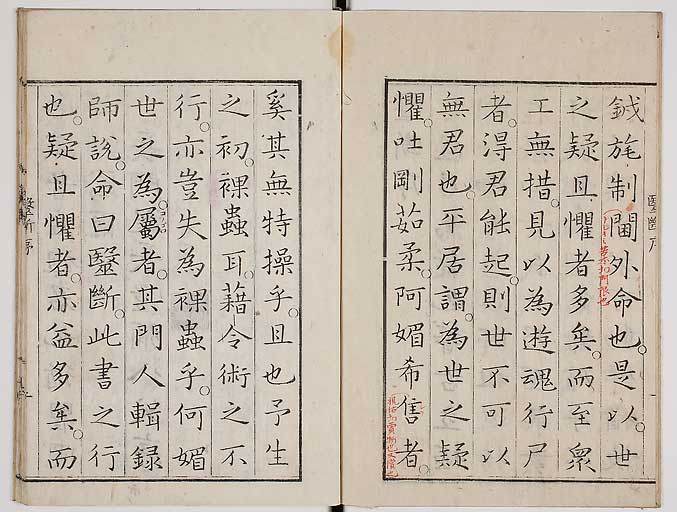 鉞旄制閫外命也是以世
之疑且懼者多矣而至衆
工無措見以為遊魂行尸
者得君能起則世不可以
無君也平居謂為世之疑
懼吐剛茹柔阿媚希售者
奚其無特操乎且也予生
之初裸蟲耳藉令術之不
行亦豈失為裸蟲乎何媚
世之為屬者其門人輯録
師說命曰毉斷此書之行
也疑且懼者亦益多矣而
毉斷序